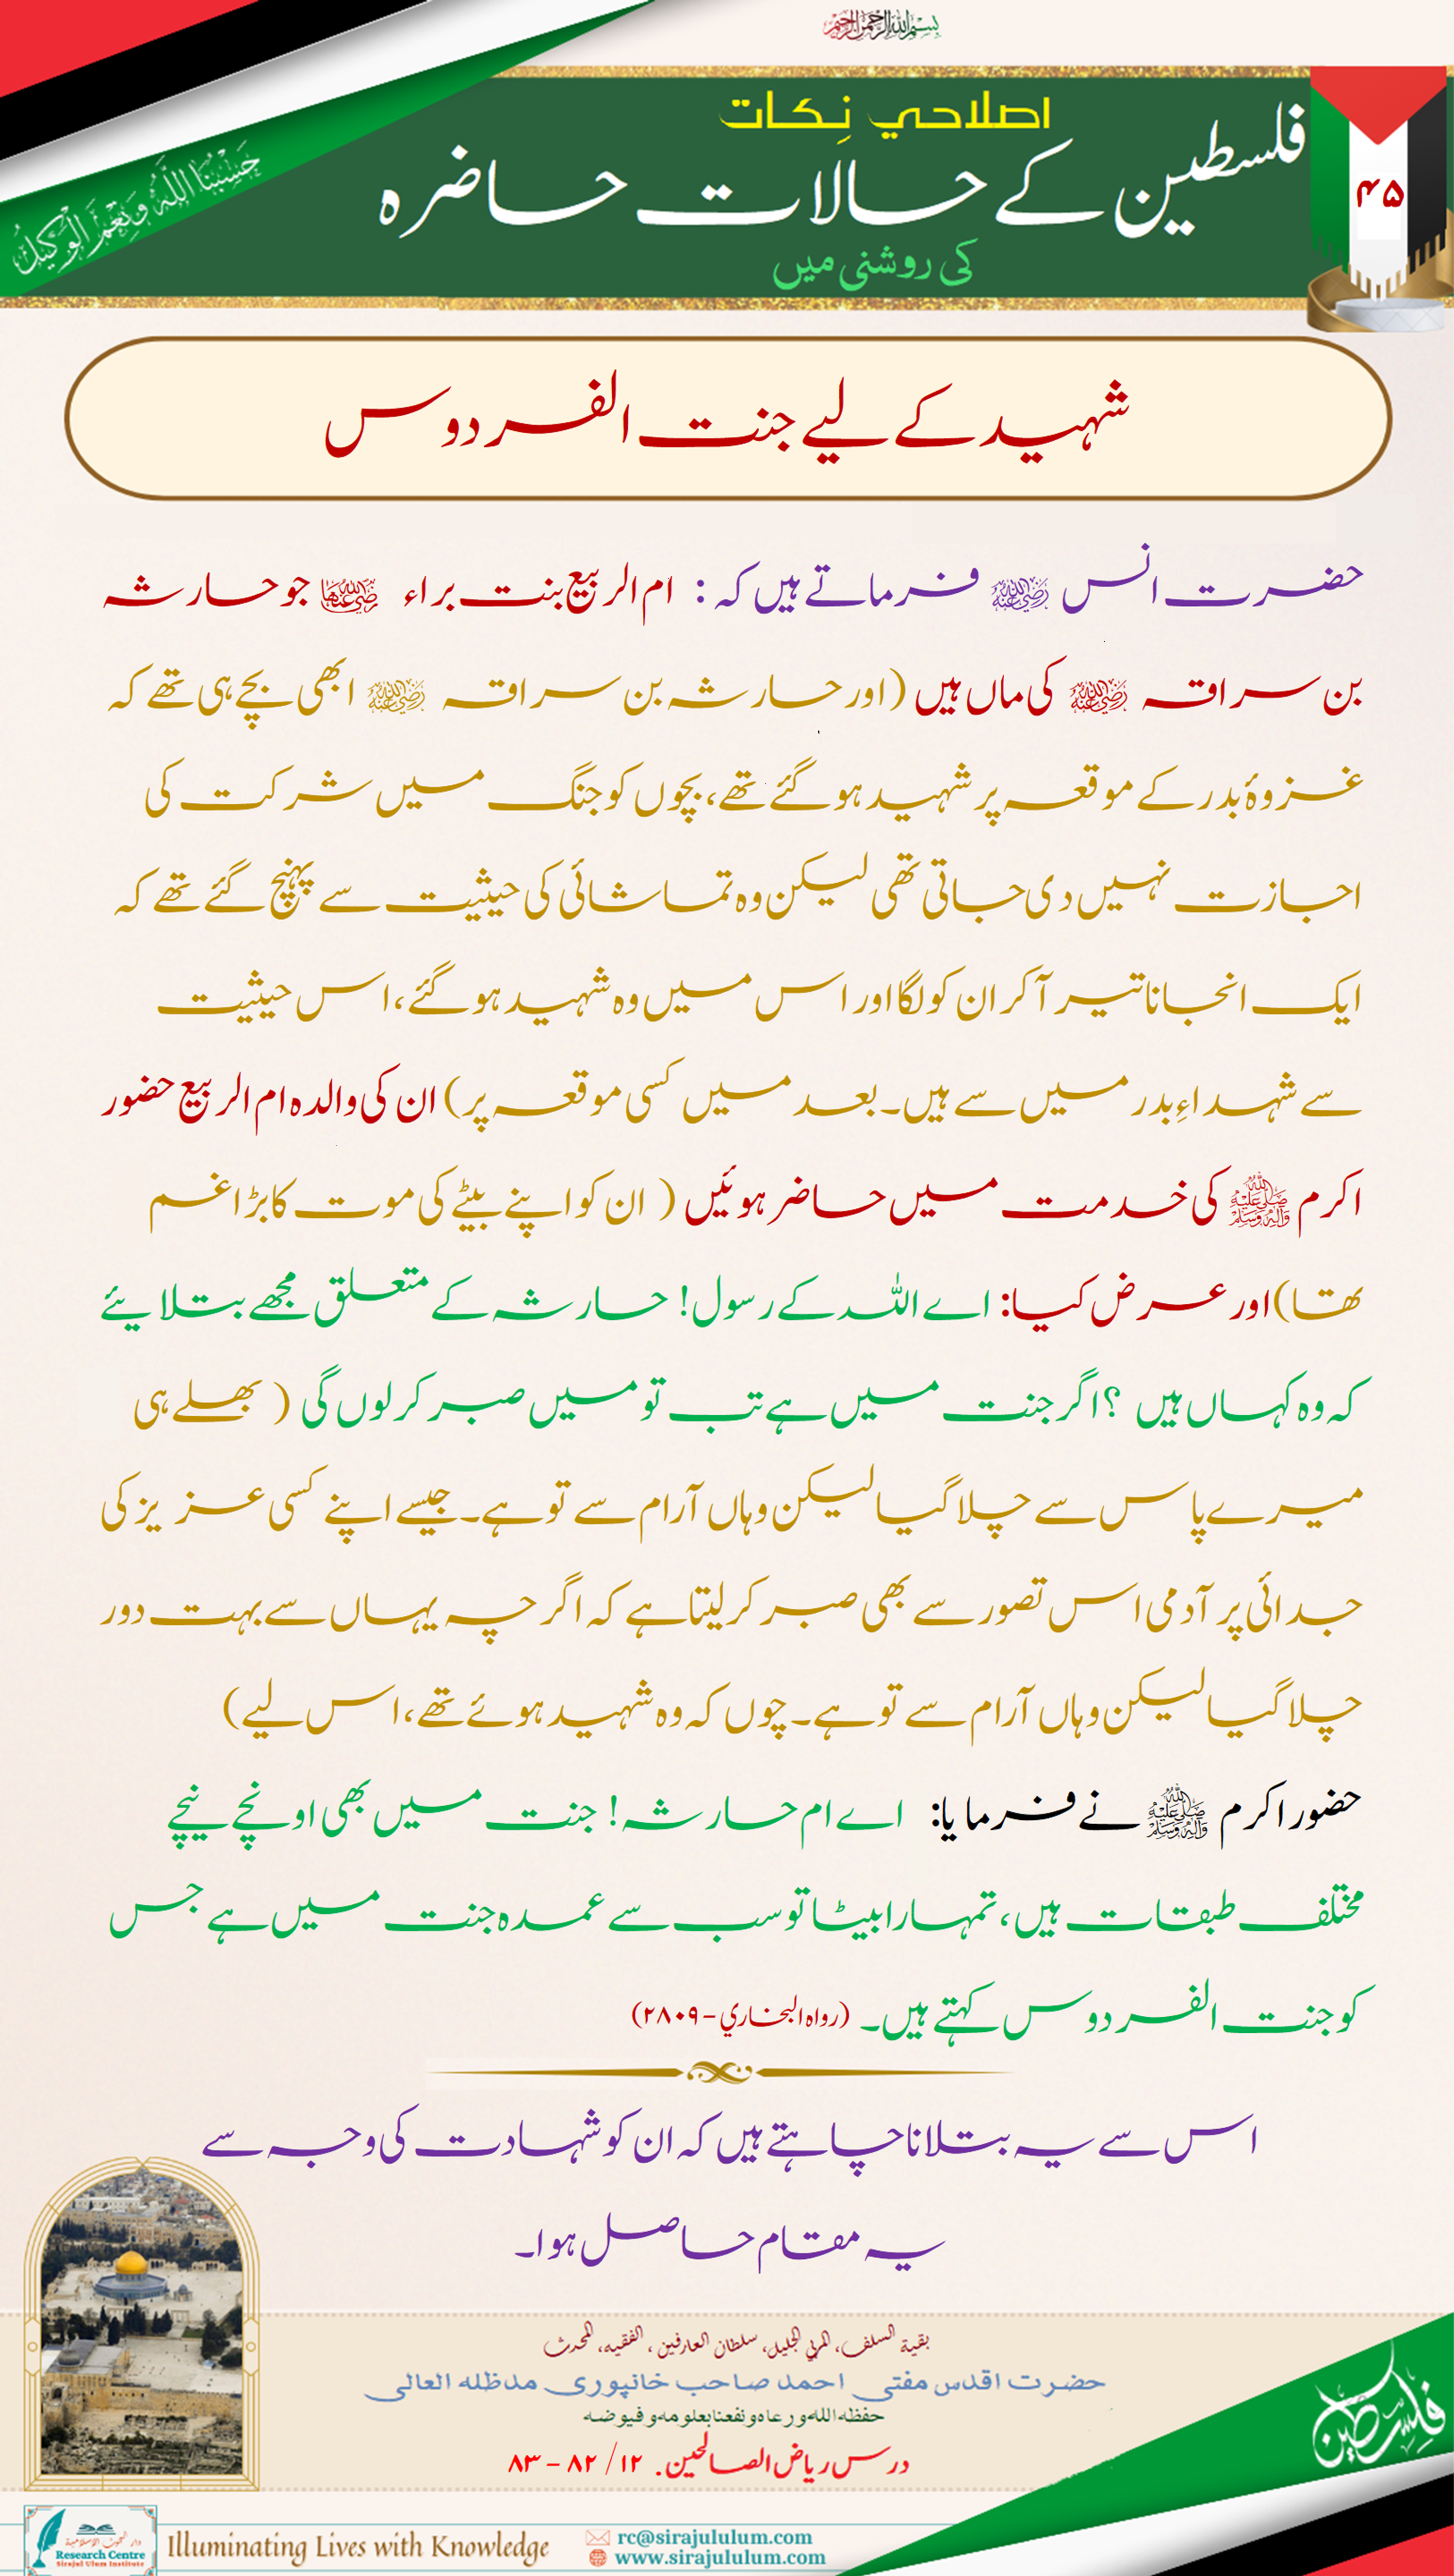 بسم الله الرحمن الرحيم
اصلاحي نِکات
فلسطین کے حالات حاضرہ
کی روشنی میں
۴۵
حَسْبُنَا اللّٰهُ وَنِعْمَ الْوَكِيْلُ
شہید کے لیے جنت الفردوس
حضرت انس رضی اللہ عنہ فرماتے ہیں کہ: ام الربیع بنت براء رضی اللہ عنہا جو حارثہ
بن سراقہ رضی اللہ عنہ کی ماں ہیں (اور حارثہ بن سراقہ رضی اللہ عنہ ابھی بچے ہی تھے کہ
غزوۂ بدر کے موقعہ پر شہید ہو گئے تھے، بچوں کو جنگ میں شرکت کی
اجازت نہیں دی جاتی تھی لیکن وہ تماشائی کی حیثیت سے پہنچ گئے تھے کہ
ایک انجانا تیر آکر ان کو لگا اور اس میں وہ شہید ہو گئے، اس حیثیت
سے شہداءِ بدر میں سے ہیں۔ بعد میں کسی موقعہ پر) ان کی والدہ ام الربیع حضور
اکرم ﷺ کی خدمت میں حاضر ہوئیں ( ان کو اپنے بیٹے کی موت کا بڑا غم
تھا) اور عرض کیا: اے اللہ کے رسول! حارثہ کے متعلق مجھے بتلایئے
کہ وہ کہاں ہیں ؟ اگر جنت میں ہے تب تو میں صبر کرلوں گی ( بھلے ہی
میرے پاس سے چلا گیا لیکن وہاں آرام سے تو ہے۔ جیسے اپنے کسی عزیز کی
جدائی پر آدمی اس تصور سے بھی صبر کر لیتا ہے کہ اگر چہ یہاں سے بہت دور
چلا گیا لیکن وہاں آرام سے تو ہے۔ چوں کہ وہ شہید ہوئے تھے، اس لیے)
حضور اکرم ﷺ نے فرمایا: اے ام حارثہ! جنت میں بھی اونچے نیچے
مختلف طبقات ہیں، تمہارا بیٹا تو سب سے عمدہ جنت میں ہے جس
کو جنت الفردوس کہتے ہیں۔ (رواہ البخاري - ۲۸۰۹)
اس سے یہ بتلانا چاہتے ہیں کہ ان کو شہادت کی وجہ سے
یہ مقام حاصل ہوا۔
بقية السلف، المربي الجليل، سلطان العارفين، الفقيه، المحدث
حضرت اقدس مفتی احمد صاحب خانپوری مدظلہ العالی
حفظه الله ورعاه ونفعنا بعلومه وفيوضه
درس ریاض الصالحین. ۱۲/ ۸۲ – ۸۳
فلسطين
دار البحوث الإسلامية
Research Centre
Sirajul Ulum Institute
Illuminating Lives with Knowledge
rc@sirajululum.com
www.sirajululum.com